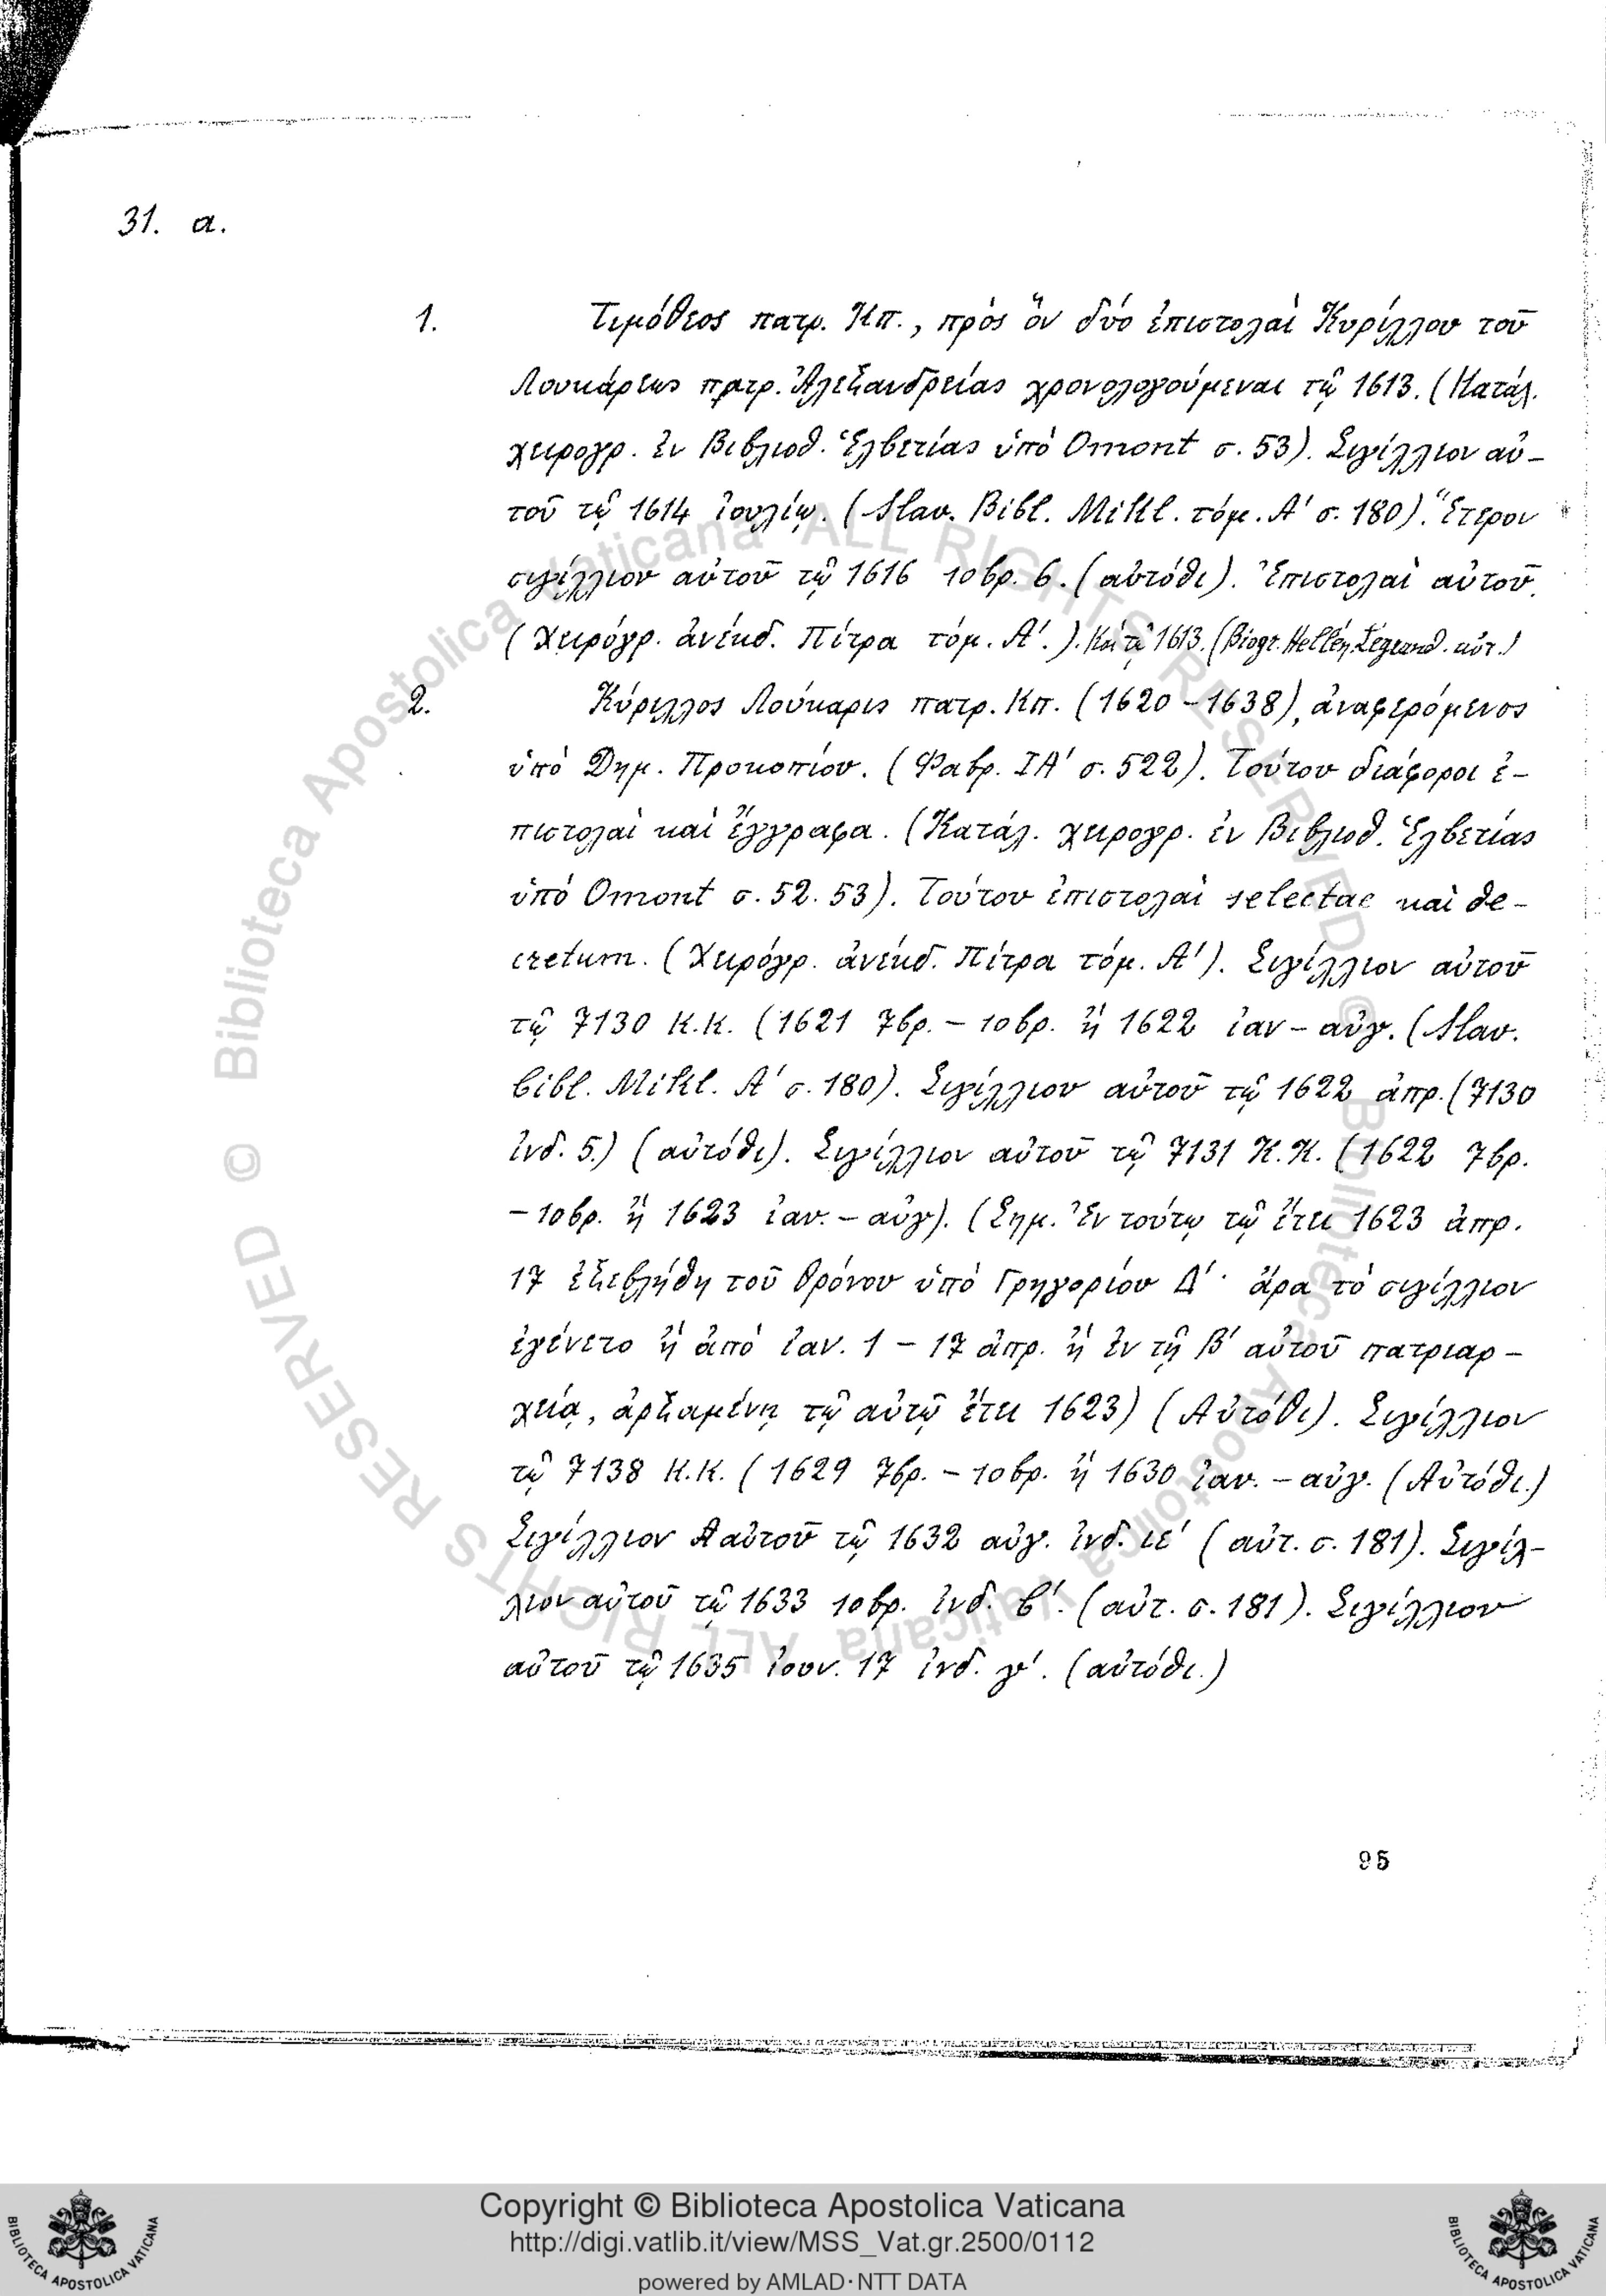 31. α.
1. Τιμόθεος πατρ. Κπ., πρὸς ὃν δύο ἐπιστολαὶ Κυρίλλου τοῦ
Λουκάρεως πατρ. Ἀλεξανδρείας χρονολογούμεναι τῷ 1613. (Κατάλ.
χειρογρ. ἐν Βιβλιοθ. Ἑλβετίας ὑπὸ Omont σ. 53). Σιγίλλιον αὐ-
τοῦ τῷ 1614 ἰουλίῳ. (Slav. Bibl. Mikl. τόμ. Α' σ. 180). Ἕτερον
σιγίλλιον αὐτοῦ τῷ 1616 10βρ. 6. (αὐτόθι). Ἐπιστολαὶ αὐτοῦ.
(Χειρόγρ. ἀνέκδ. Πίτρα τόμ. Α'.). Καὶ τῷ 1613. (Biogr. Hellén. Légrand. αὐτ.)
2. Κύριλλος Λούκαρις πατρ. Κπ. (1620 – 1638), ἀναφερόμενος
ὑπὸ Δημ. Προκοπίου. (Φαβρ. ΙΑ' σ. 522). Τούτου διάφοροι ἐ-
πιστολαὶ καὶ ἔγγραφα. (Κατάλ. χειρογρ. ἐν Βιβλιοθ. Ἑλβετίας
ὑπὸ Omont σ. 52. 53). Τούτου ἐπιστολαὶ selectae καὶ de-
cretum. (Χειρόγρ. ἀνέκδ. Πίτρα τόμ. Α'). Σιγίλλιον αὐτοῦ
τῷ 7130 Κ.Κ. (1621 7βρ. – 10βρ. ἢ 1622 ἰαν – αὐγ. (Slav.
bibl. Mikl. Α' σ. 180). Σιγίλλιον αὐτοῦ τῷ 1622 ἀπρ. (7130
ἰνδ. 5.) (αὐτόθι). Σιγίλλιον αὐτοῦ τῷ 7131 Κ.Κ. (1622 7βρ.
– 10βρ. ἢ 1623 ἰαν. – αὐγ). (Σημ. Ἐν τούτῳ τῷ ἔτει 1623 ἀπρ.
17 ἐξεβλήθη τοῦ θρόνου ὑπὸ Γρηγορίου Δ'· ἄρα τὸ σιγίλλιον
ἐγένετο ἢ ἀπὸ ἰαν. 1 – 17 ἀπρ. ἢ ἐν τῇ β' αὐτοῦ πατριαρ-
χείᾳ, ἀρξαμένῃ τῷ αὐτῷ ἔτει 1623) (Αὐτόθι). Σιγίλλιον
τῷ 7138 Κ.Κ. (1629 7βρ. – 10βρ. ἢ 1630 ἰαν. – αὐγ. (Αὐτόθι.)
Σιγίλλιον αὐτοῦ τῷ 1632 αὐγ. ἰνδ. ιε' (αὐτ. σ. 181). Σιγίλ-
λιον αὐτοῦ τῷ 1633 10βρ. ἰνδ. β'. (αὐτ. σ. 181). Σιγίλλιον
αὐτοῦ τῷ 1635 ἰουν. 17 ἰνδ. γ'. (αὐτόθι.)
95
© Biblioteca Apostolica Vaticana ALL RIGHTS RESERVED © Biblioteca Apostolica Vaticana ALL RIGHTS RESERVED
Copyright © Biblioteca Apostolica Vaticana
http://digi.vatlib.it/view/MSS_Vat.gr.2500/0112
powered by AMLAD·NTT DATA
BIBLIOTECA APOSTOLICA VATICANA
BIBLIOTECA APOSTOLICA VATICANA